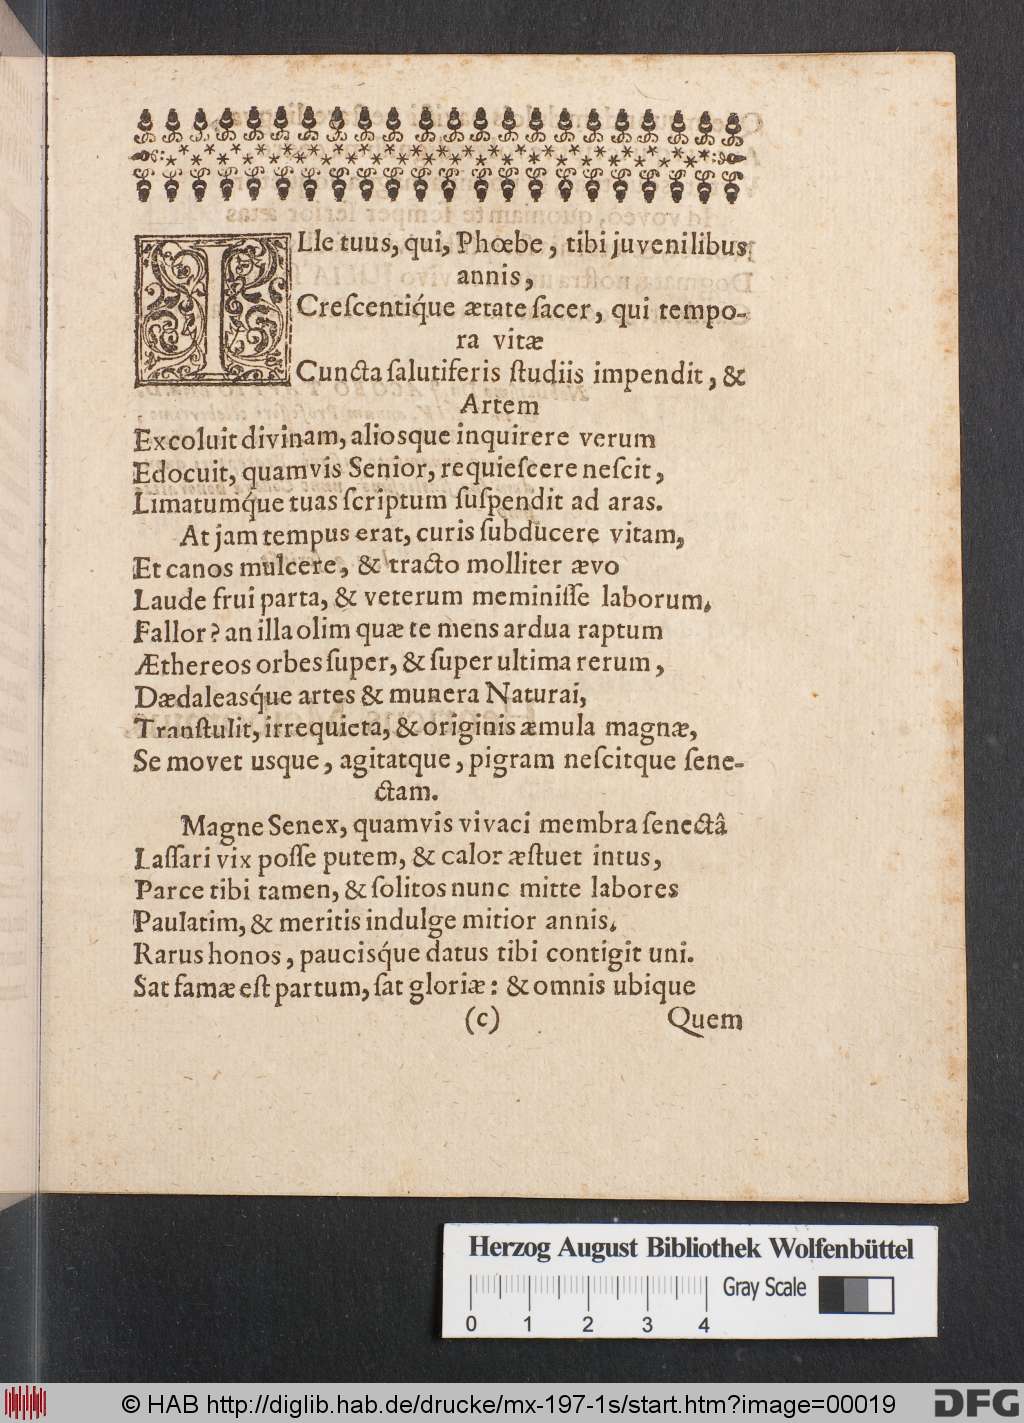 ILle tuus, qui, Phœbe, tibi juvenilibus
annis,
Creſcentiq́ue ætate ſacer, qui tempo-
ra vitæ
Cuncta ſalutiferis ſtudiis impendit, &
Artem
Excoluit divinam, aliosque inquirere verum
Edocuit, quamvis Senior, requieſcere neſcit,
Limatumq́ue tuas ſcriptum ſuſpendit ad aras.
At jam tempus erat, curis ſubducere vitam,
Et canos mulcere, & tracto molliter ævo
Laude frui parta, & veterum meminiſſe laborum.
Fallor? an illa olim quæ te mens ardua raptum
Æthereos orbes ſuper, & ſuper ultima rerum,
Dædaleasq́ue artes & munera Naturai,
Tranſtulit, irrequieta, & originis æmula magnæ,
Se movet usque, agitatque, pigram neſcitque ſene-
ctam.
Magne Senex, quamvis vivaci membra ſenectâ
Laſſari vix poſſe putem, & calor æſtuet intus,
Parce tibi tamen, & ſolitos nunc mitte labores
Paulatim, & meritis indulge mitior annis.
Rarus honos, paucisq́ue datus tibi contigit uni.
Sat famæ eſt partum, ſat gloriæ: & omnis ubique
(c) Quem
Herzog August Bibliothek Wolfenbüttel
Gray Scale
0 1 2 3 4
© HAB http://diglib.hab.de/drucke/mx-197-1s/start.htm?image=00019
DFG